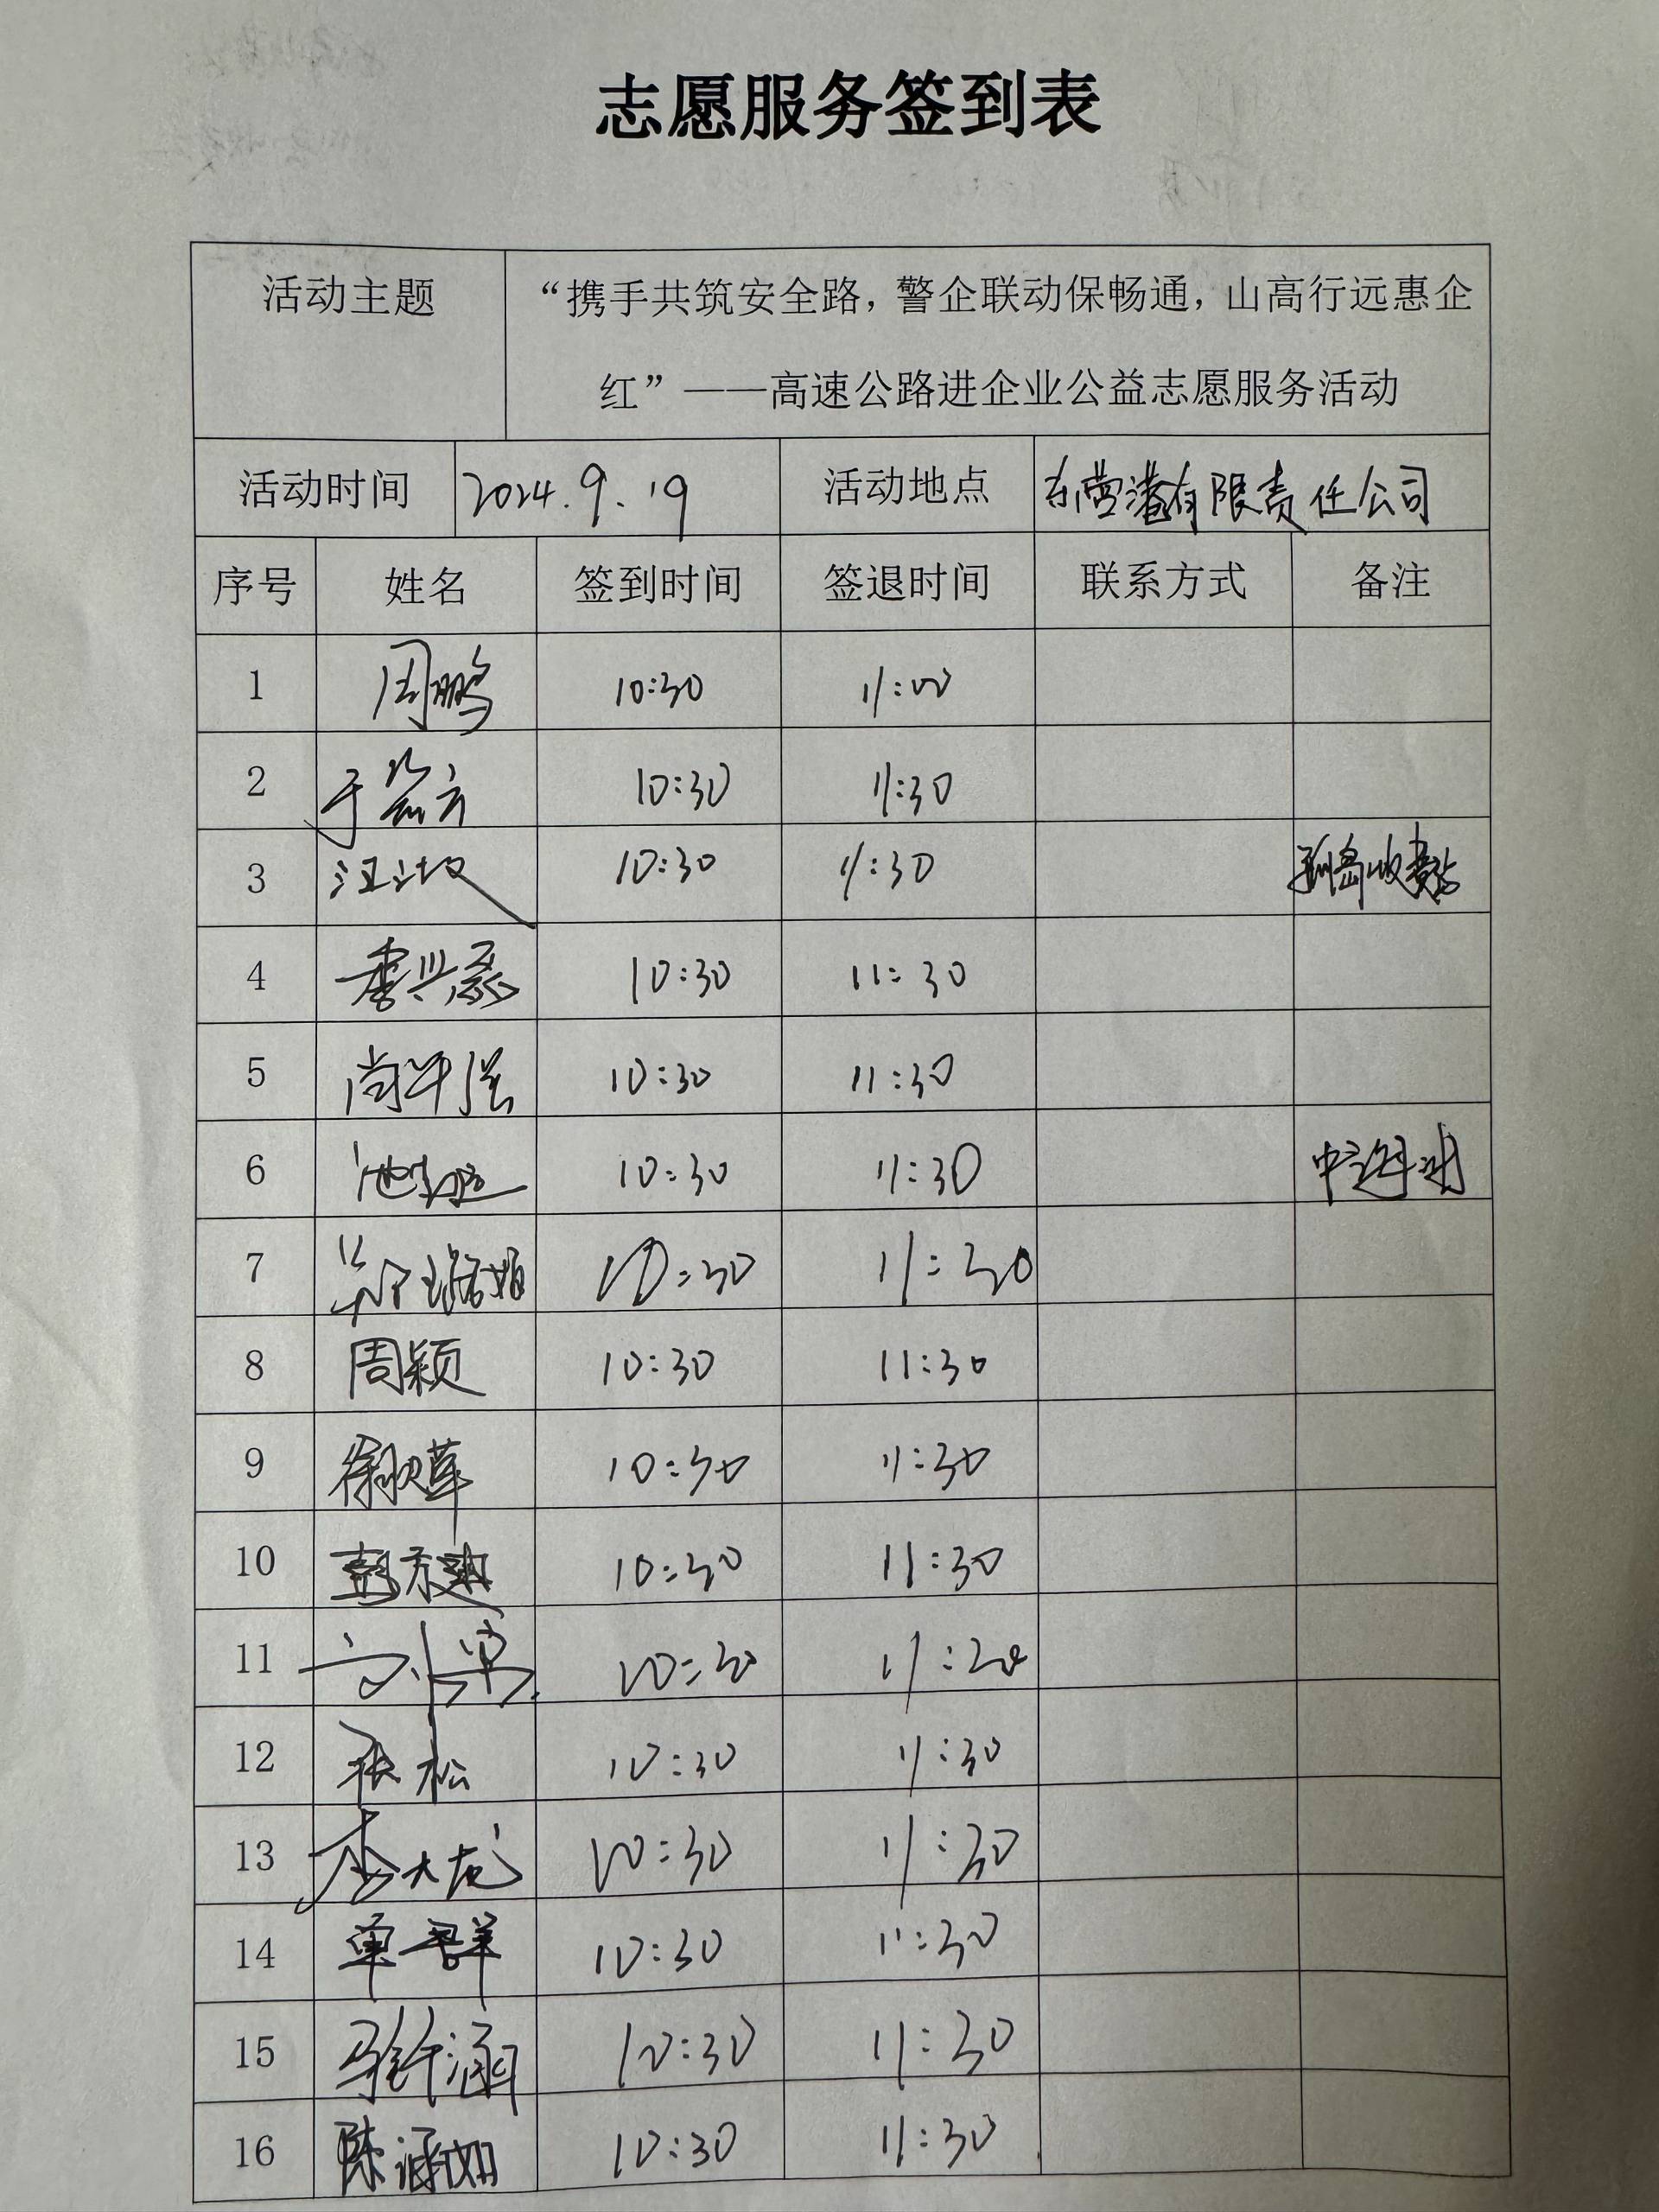 志愿服务签到表
活动主题
“携手共筑安全路，警企联动保畅通，山高行远惠企
红”——高速公路进企业公益志愿服务活动
活动时间 2024.9.19 活动地点 东营港有限责任公司
序号 姓名 签到时间 签退时间 联系方式 备注
1 周鹏 10:30 11:00
2 于 10:30 11:30
3 汪 10:30 11:30 收费站
4 李兴 10:30 11:30
5 尚 10:30 11:30
6 池 10:30 11:30
7 10:30 11:30
8 周颖 10:30 11:30
9 徐 10:30 11:30
10 彭 10:30 11:30
11 10:30 11:30
12 张松 10:30 11:30
13 李大龙 10:30 11:30
14 单群 10:30 11:30
15 马 涵 10:30 11:30
16 陈涵如 10:30 11:30